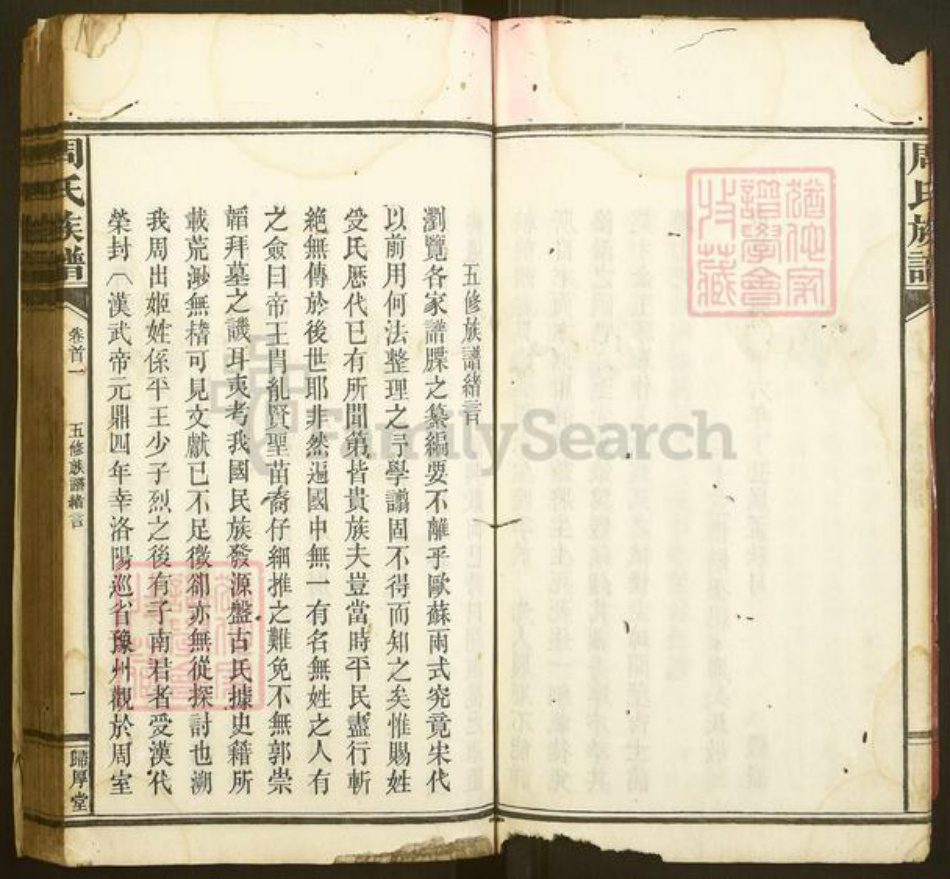 周氏族譜
五修族譜緒言
瀏覽各家譜牒之纂編要不離乎歐蘇兩式究竟宋代
以前用何法整理之予學譾固不得而知之矣惟賜姓
受氏歷代已有所聞第皆貴族夫豈當時平民盡行斬
絕無傳於後世耶非然遍國中無一有名無姓之人有
之僉曰帝王胄亂賢聖苗裔仔細推之難免不無郭崇
韜拜墓之譏耳夷考我國民族發源盤古氏據史籍所
載荒渺無稽可見文獻已不足徵卻亦無從探討也溯
我周出姬姓係平王少子烈之後有子南君者受漢代
榮封(漢武帝元鼎四年幸洛陽巡省豫州觀於周室
周氏族譜
卷首一
五修族譜緒言
一
歸厚堂
猶他家
譜學會
收藏
FamilySearch